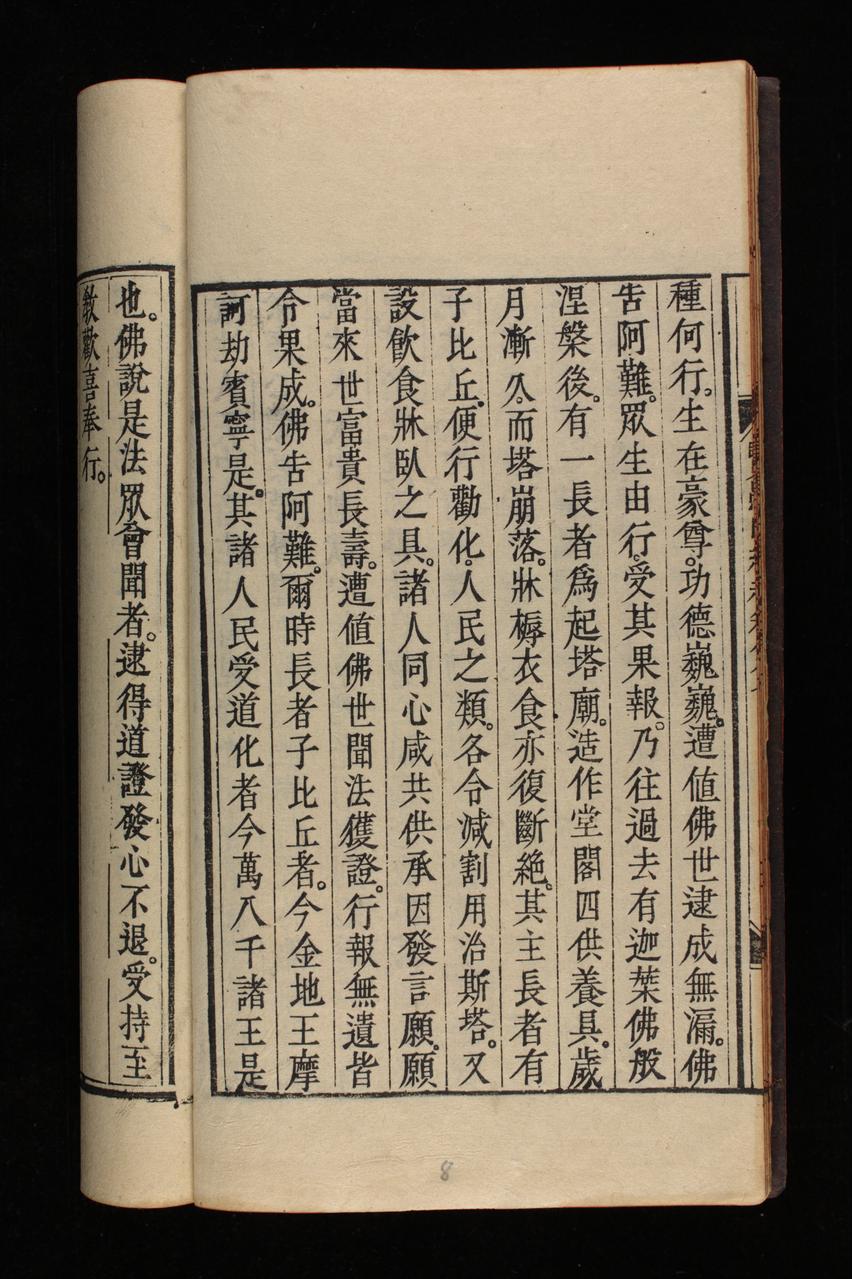 種何行。生在豪尊。功德巍巍。遭値佛世逮成無漏。佛
告阿難。眾生由行。受其果報。乃往過去有迦葉佛般
涅槃後。有一長者爲起塔廟。造作堂閣四供養具。歲
月漸久。而塔崩落。牀褥衣食亦復斷絶。其主長者有
子比丘。便行勸化。人民之類。各令減割用治斯塔。又
設飲食牀臥之具。諸人同心咸共供承因發言願。願
當來世富貴長壽。遭値佛世聞法獲證。行報無遺皆
令果成。佛告阿難。爾時長者子比丘者。今金地王摩
訶劫賓寧是。其諸人民受道化者今萬八千諸王是
也。佛說是法眾會聞者。逮得道證發心不退。受持至
敎歡喜奉行。
8